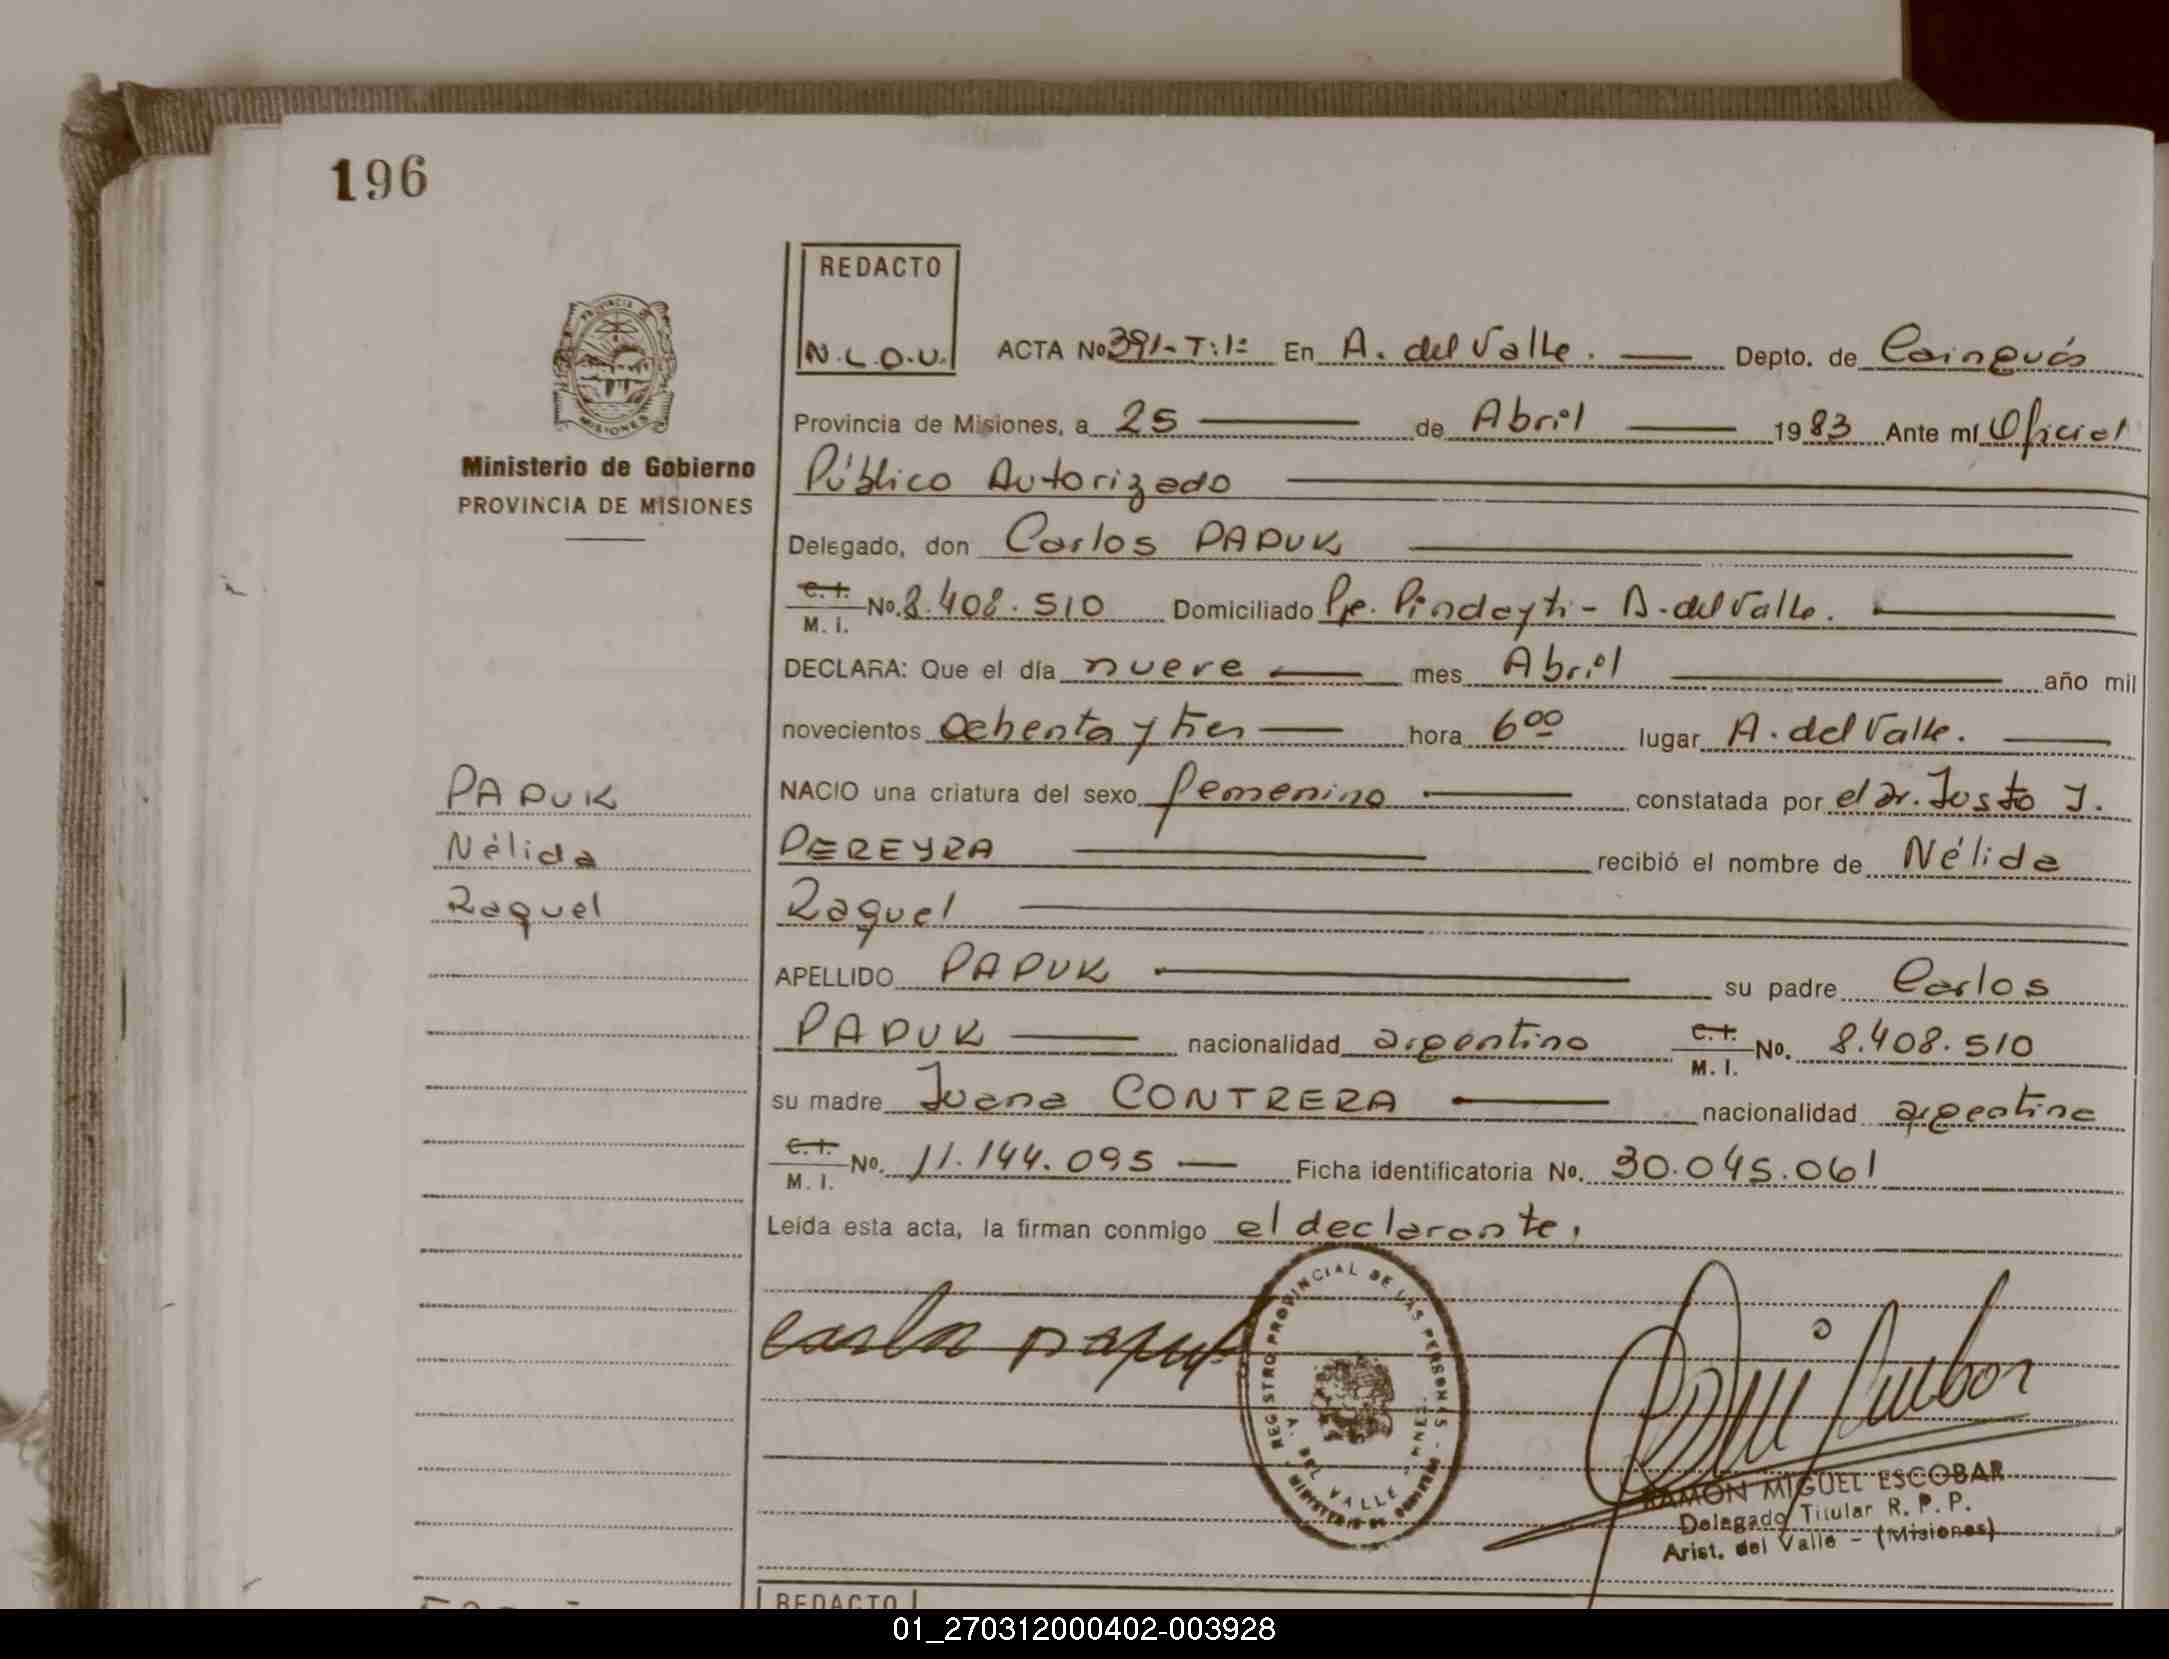 196
REDACTO
N.L.O.U.
PROVINCIA
MISIONES
Ministerio de Gobierno
PROVINCIA DE MISIONES
ACTA No 391-T:1º En A. del Valle. Depto. de Cainguás
Provincia de Misiones, a 25 de Abril 1983 Ante mí Oficial
Público Autorizado
Delegado, don Carlos PAPUK
C.I. M.I. No. 8.408.510 Domiciliado Pje. Pindayti - A. del Valle.
DECLARA: Que el día nueve mes Abril año mil
novecientos Ochenta y tres hora 6 00 lugar A. del Valle.
NACIO una criatura del sexo femenino constatada por el Dr. Justo J.
PEREYRA recibió el nombre de Nélida
Raquel
APELLIDO PAPUK su padre Carlos
PAPUK nacionalidad argentino C.I. M.I. No. 8.408.510
su madre Juana CONTRERA nacionalidad argentina
C.I. M.I. No. 11.144.095 Ficha identificatoria No. 30.045.061
Leída esta acta, la firman conmigo el declarante,
PAPUK
Nélida
Raquel
Carlos Papuk
REGISTRO PROVINCIAL DE LAS PERSONAS
A. DEL VALLE
MINISTERIO DE GOBIERNO
RAMON MIGUEL ESCOBAR
Delegado Titular R. P. P.
Arist. del Valle - (Misiones)
REDACTO
01_270312000402-003928